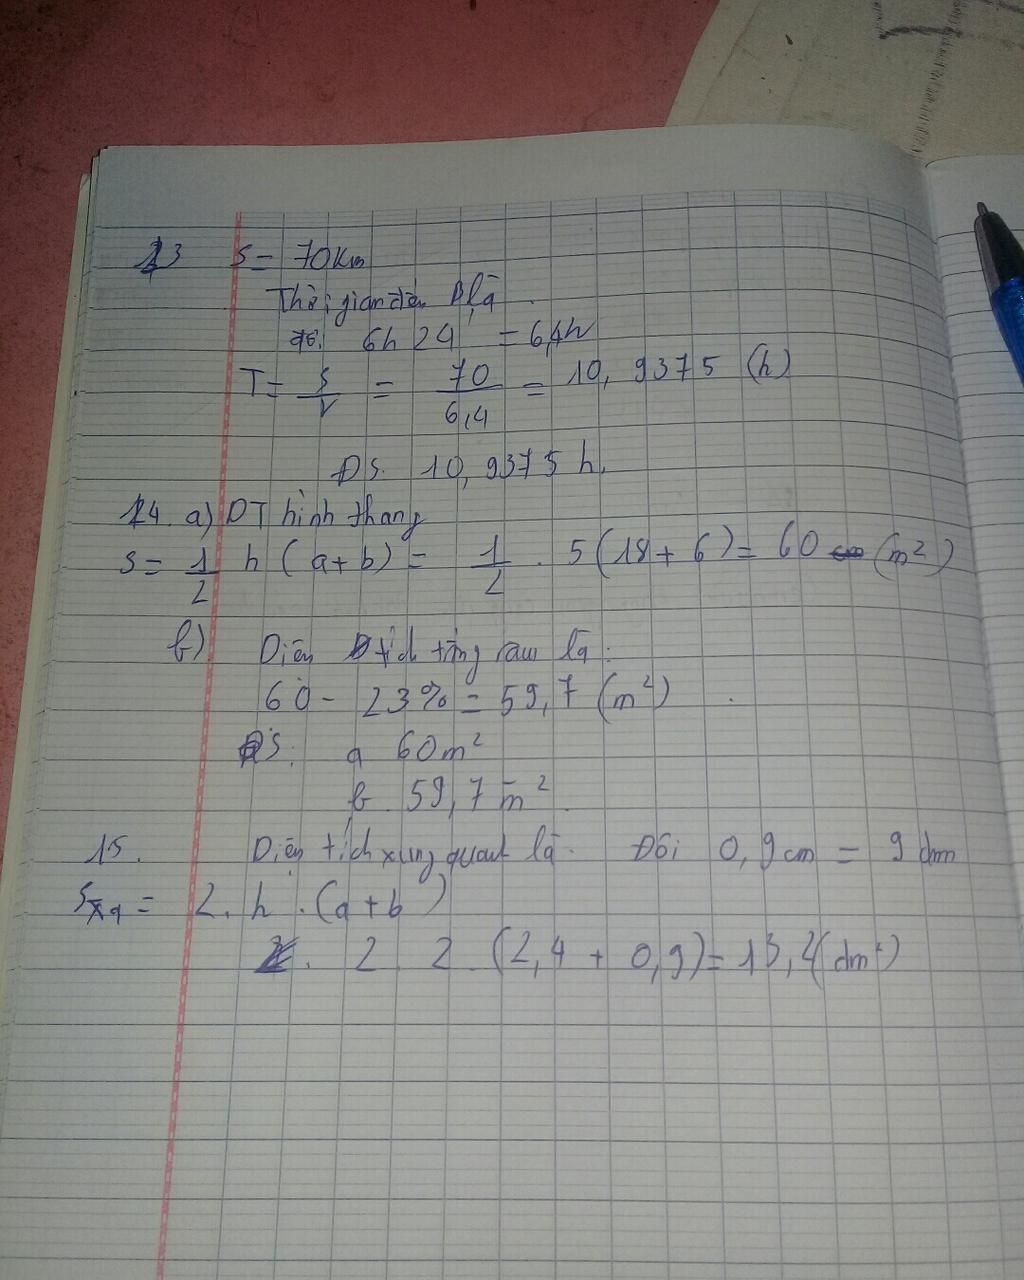 13 S = 70Km
Thời gian đến B là
đổi 6h 24' = 6,4h
T = S/V = 70/6,4 = 10,9375 (h)
ĐS. 10,9375 h.
14. a) DT hình thang
S = 1/2 h (a+b) = 1/2 . 5 (18 + 6) = 60 (m²)
b) Diện tích trồng rau là:
60 - 23% = 59,7 (m²)
ĐS: a 60m²
b. 59,7 m².
15. Diện tích xung quanh là. Đổi 0,9cm = 9 dm
Sxq = 2. h .(a+b)
2 2 .(2,4 + 0,9) = 13,2(dm²)